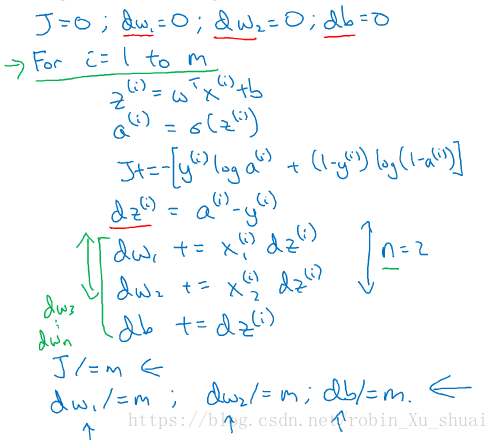 J=0; dw₁=0; dw₂=0; db=0
→ For i=1 to m
z⁽ⁱ⁾=wᵀx⁽ⁱ⁾+b
a⁽ⁱ⁾=σ(z⁽ⁱ⁾)
J+=-[y⁽ⁱ⁾log a⁽ⁱ⁾+(1-y⁽ⁱ⁾)log(1-a⁽ⁱ⁾)]
dz⁽ⁱ⁾=a⁽ⁱ⁾-y⁽ⁱ⁾
dw₁+=x₁⁽ⁱ⁾dz⁽ⁱ⁾
n=2
dw₂+=x₂⁽ⁱ⁾dz⁽ⁱ⁾
db+=dz⁽ⁱ⁾
dw₃
⋮
dwₙ
J/=m ←
dw₁/=m; dw₂/=m; db/=m. ←
https://blog.csdn.net/robin_Xu_shuai